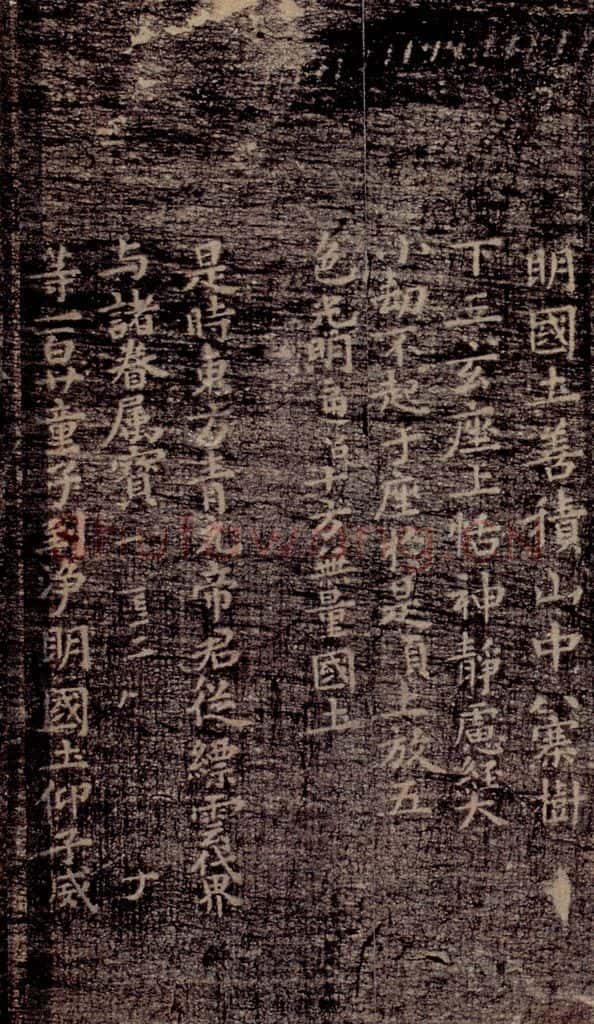 明國土善積山中八騫樹
下三玄座上恬神靜慮經大
小劫不起于座於是頂上放五
色光明通十方無量國土
是時東方青元帝君從縹雲伐界
与諸眷屬寶
等二百廿童子到净明國土仰子威